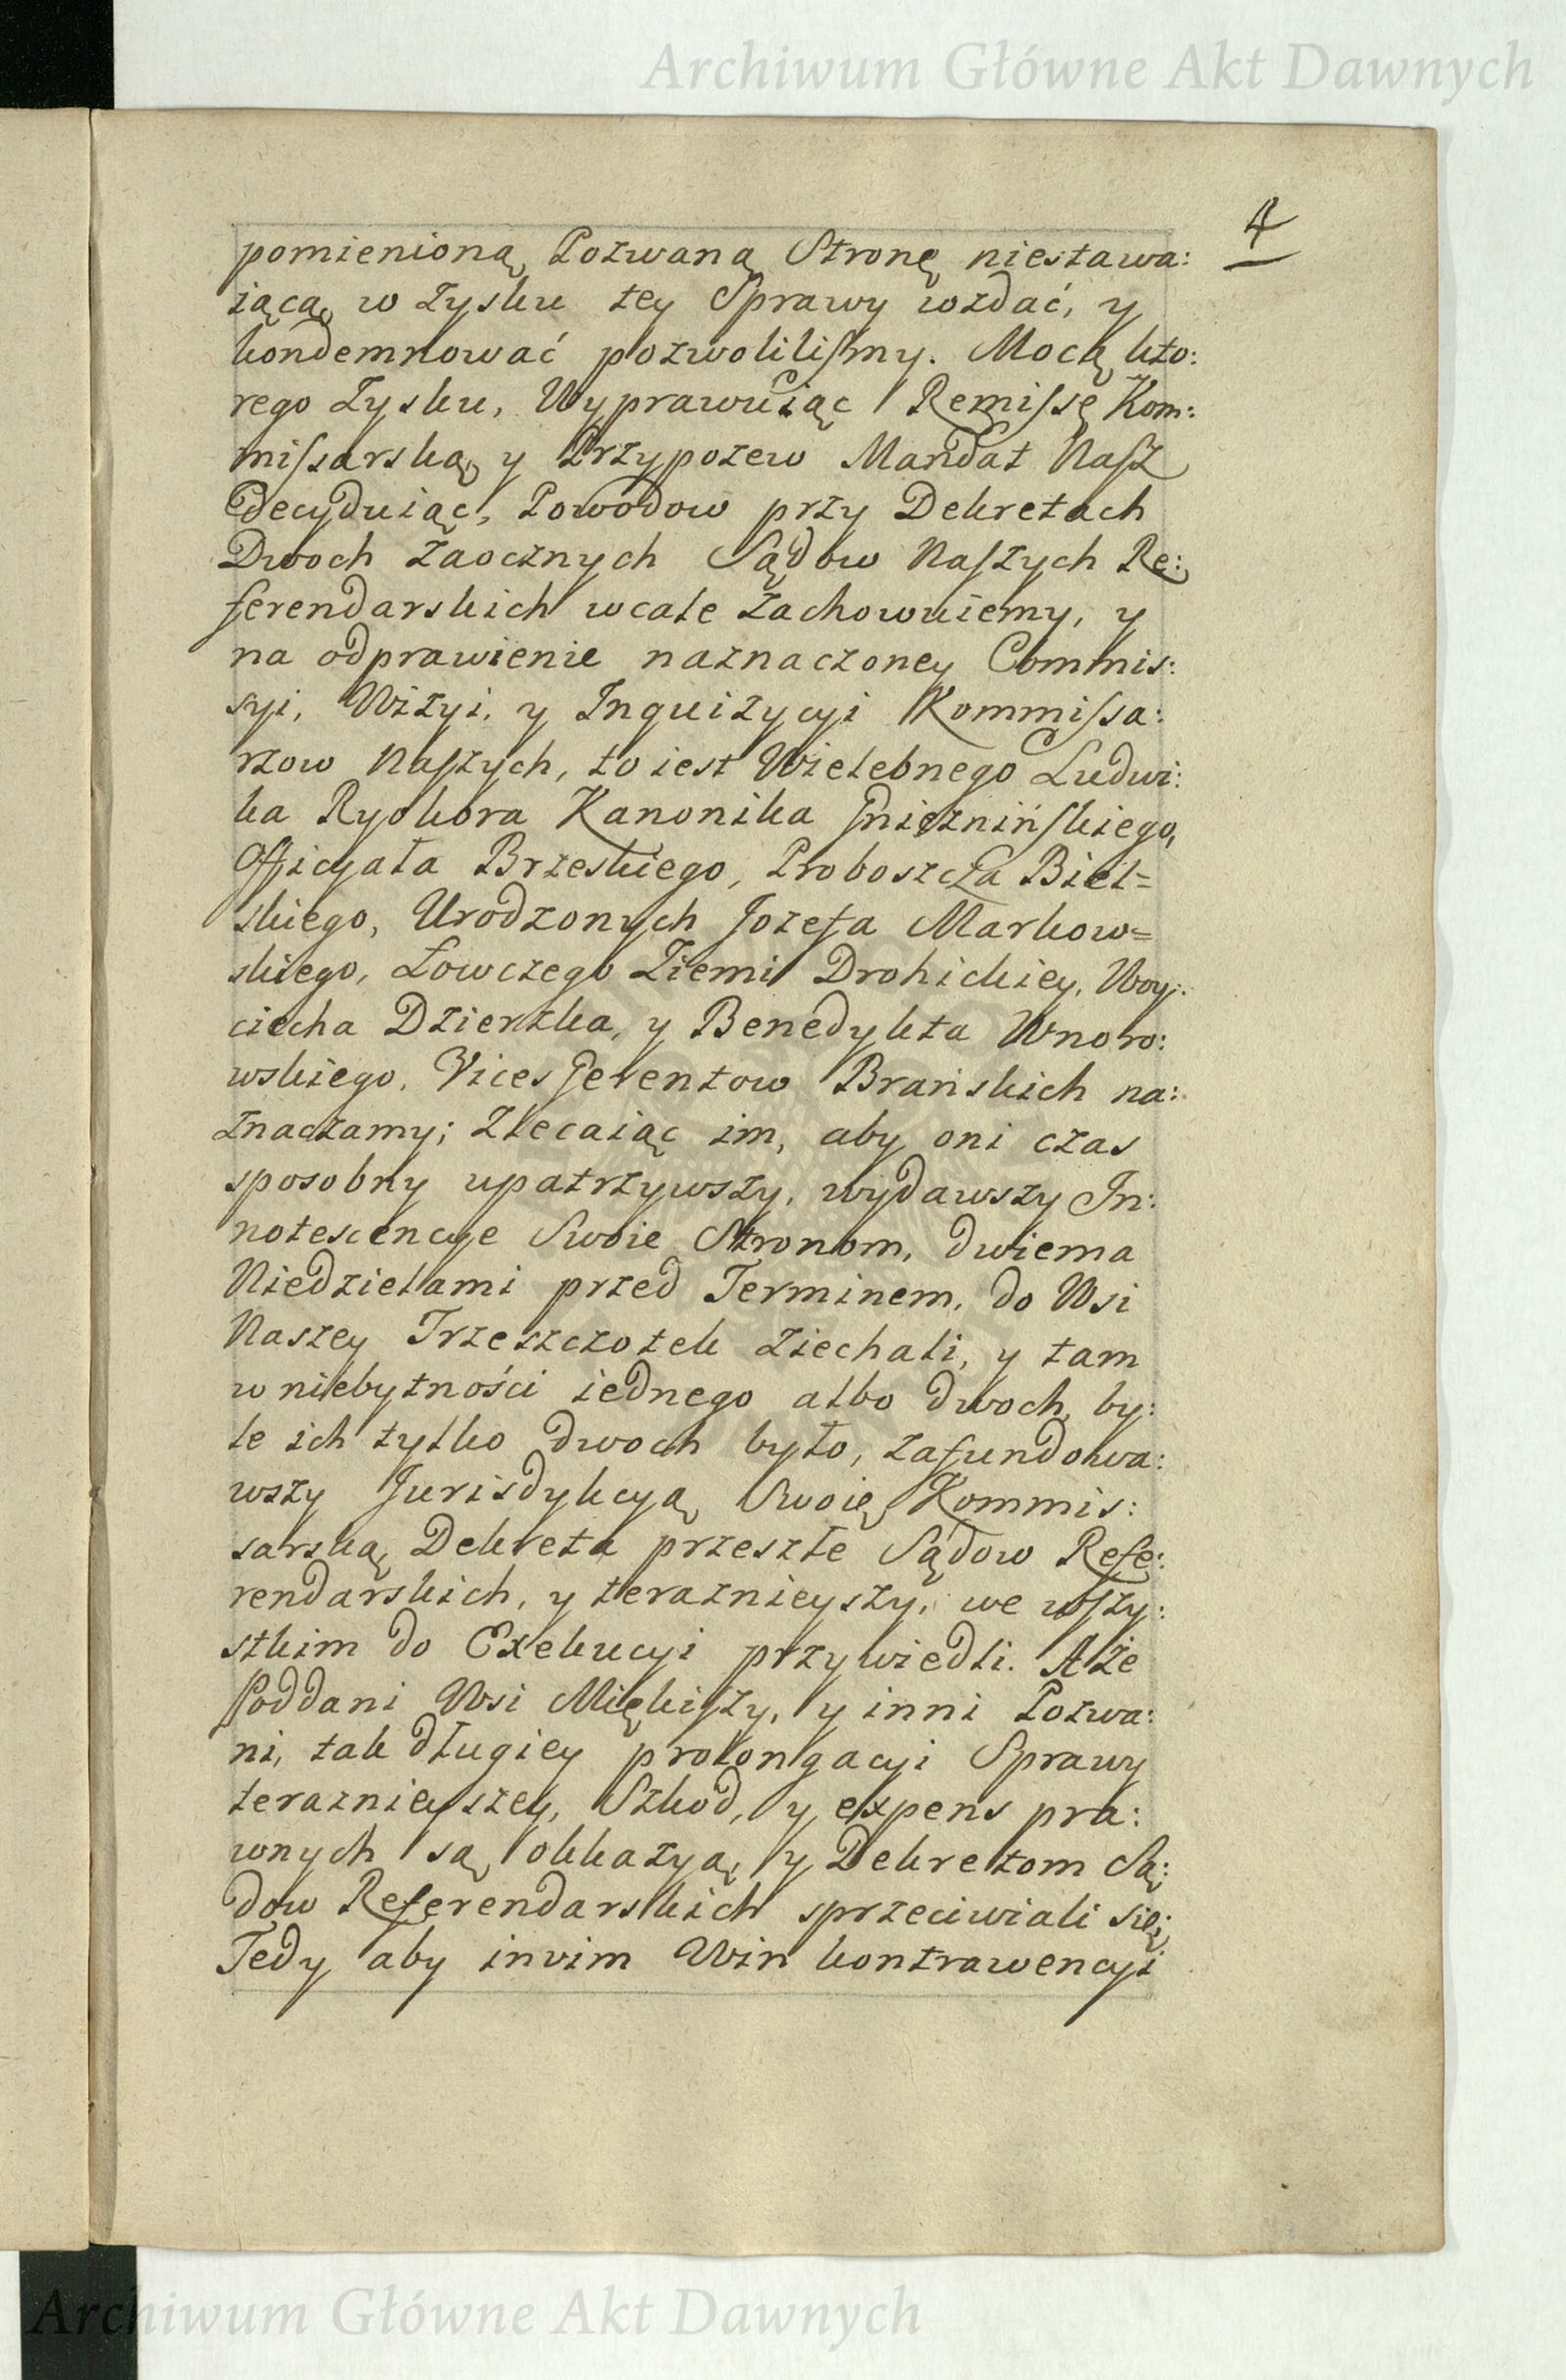 Archiwum Główne Akt Dawnych
4
pomienioną Pozwaną Stronę niestawa:
iącą, w zysku tey Sprawy wzdać, y
kondemnować pozwoliliſmy. Mocą kto:
rego Zysku, Wyprawuiąc Remiſsę Kom:
miſsarską, y Przypozew Mandat Naſz
decyduiąc, Powodow przy Dekretach
Dwoch zaocznych Sądow Naſzych Re:
ferendarskich wcale zachowuiemy, y
na odprawienie naznaczoney Commis:
syi, Wizyi, y Inquizycyi Kommiſsa:
rzow Naſzych, to iest Wielebnego Ludwi:
ka Ryokora Kanonika Gnieznińſkiego,
Officyała Brzeskiego, Proboszcza Biel=
skiego, Urodzonych Jozefa Markow=
skiego, Łowczego Ziemi Drohickiey, Woy:
ciecha Dzierzka, y Benedykta Wnoro:
wskiego, Vices Gerentow Brańskich na:
znaczamy; Zlecaiąc im, aby oni czas
sposobny upatrzywszy, wydawszy In:
notescencye Swoie Stronom, dwiema
Niedzielami przed Terminem, do Wsi
Naszey Trzeszczotek ziechali, y tam
w niebytności iednego albo dwoch, by:
le ich tylko dwoch było, zafundowa:
wszy Jurisdykcyą Swoię Kommis:
sarską, Dekreta przeszłe Sądow Refe:
rendarskich, y teraznieyszy, we wſzy:
stkim do Exekucyi przywiedli. A że
Poddani Wsi Miękiſzy, y inni Pozwa:
ni, tak długiey prolongacyi Sprawy
teraznieyszey, Szkod, y expens pra:
wnych są okkazyą, y Dekretom Są:
dow Referendarskich sprzeciwiali się;
Tedy aby in vim Win kontrawencyi
Archiwum Główne Akt Dawnych